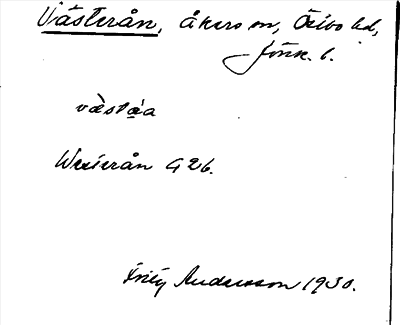 Västerån, åkers m, Östbo hd,
Jönk. l.
västa̱a
Westerån G 26.
Andersson 1930.